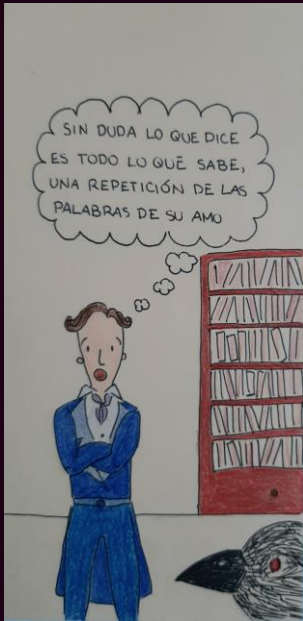 SIN DUDA LO QUE DICE
ES TODO LO QUE SABE,
UNA REPETICIÓN DE LAS
PALABRAS DE SU AMO